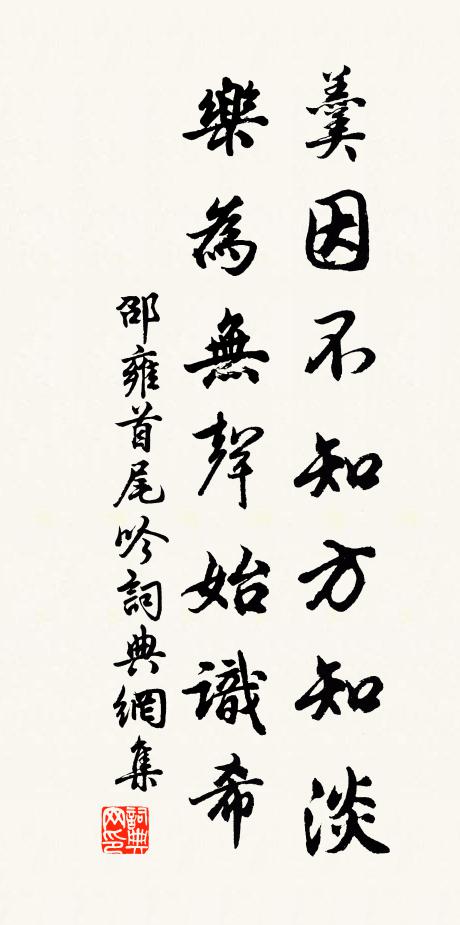 羹因不知方知淡
樂為無聲始識希
邵雍首尾吟詞典網集
詞典网印